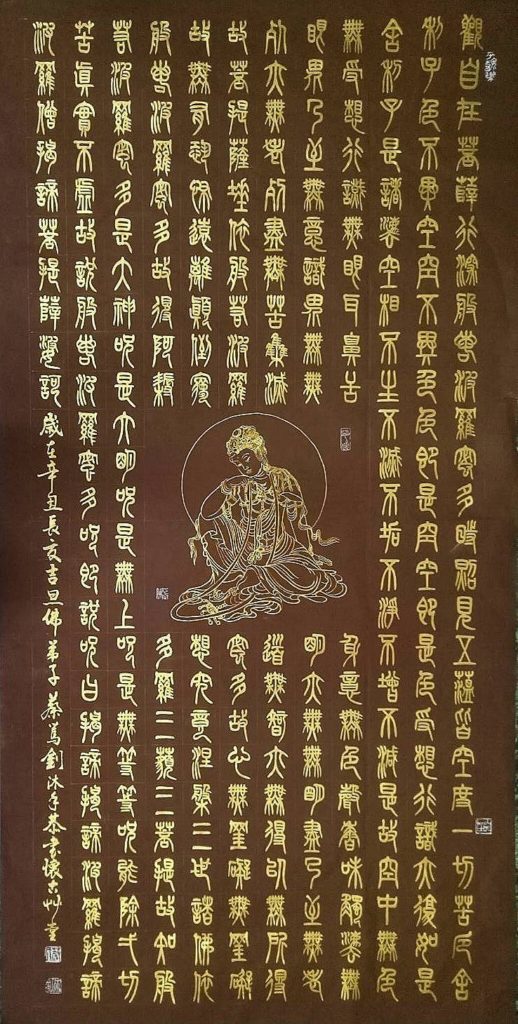 觀自在菩薩行深般若波羅蜜多時照見五蘊皆空度一切苦厄舍
利子色不異空空不異色色即是空空即是色受想行識亦復如是
舍利子是諸法空相不生不滅不垢不淨不增不減是故空中無色
無受想行識無眼耳鼻舌身意無色聲香味觸法無
眼界乃至無意識界無無明亦無無明盡乃至無老
死亦無老死盡無苦集滅道無智亦無得以無所得
故菩提薩埵依般若波羅蜜多故心無罣礙無罣礙
故無有恐怖遠離顛倒夢想究竟涅槃三世諸佛依
般若波羅蜜多故得阿耨多羅三藐三菩提故知般
若波羅蜜多是大神呪是大明呪是無上呪是無等等呪能除弌切
苦眞實不虛故說般若波羅蜜多呪即說呪曰揭諦揭諦波羅揭諦
波羅僧揭諦菩提薩婆訶 歲在辛丑長夏吉旦佛弟子蔡篤釗沐手恭書懷古艸堂